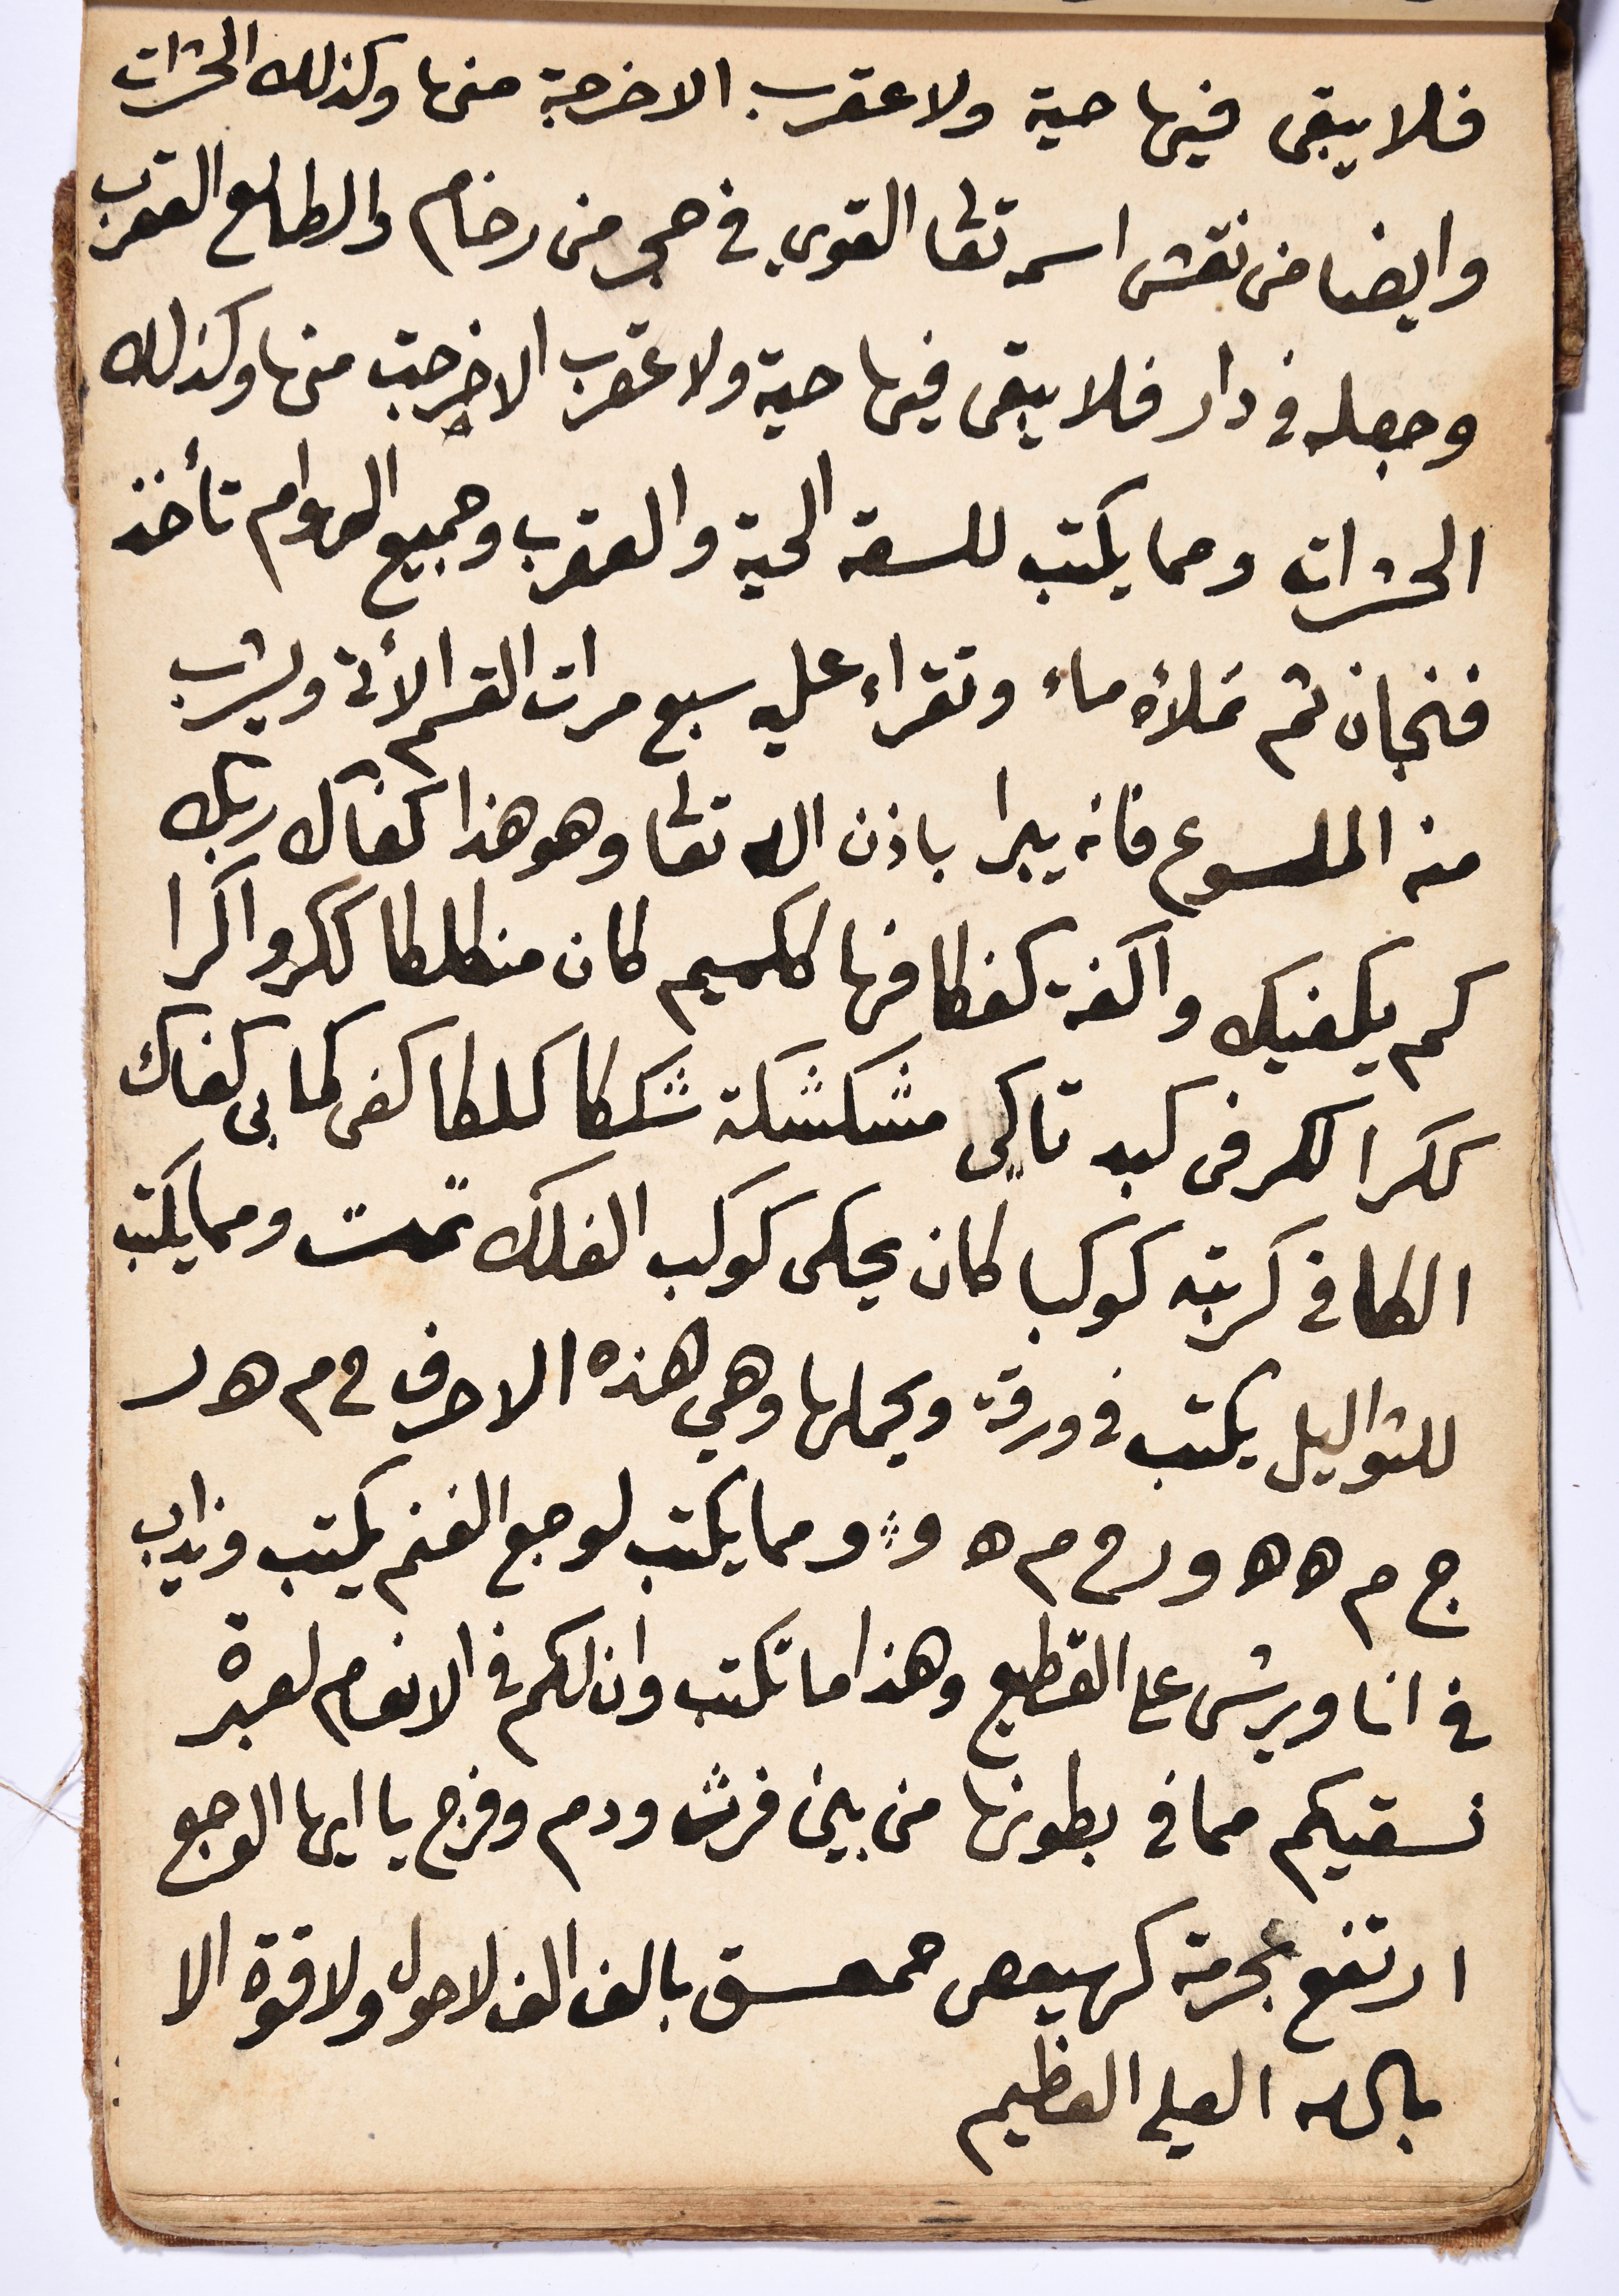 فلا يبقى فيها حية ولا عقرب الا خرجة منها وكذلك الحشرات
وايضا من نقش اسمه تعا القوي في حجر من رخام والطالع العقرب
وجعله في دار فلا يبقى فيها حية ولا عقرب الا خرجت منها وكذلك
الحشرات ومما يكتب للسعة الحية والعقرب وجميع الهوام تأخذ
فنجان ثم تملأه ماء وتقراء عليه سبع مرات القسم الأتي ويشرب
منه الملسوع فانه يبرا باذن الله تعا وهو هذا كفاك ربك
كم يكفيك واكفة كفكافها ككميم كان منكلكا ككرواكرا
ككرا ككر فى كبد تاكى مشكشكة شككا كلكا كفى كمابى كفاك
الكافي كربته كوكبا كان يحكى كوكب الفلك تمت ومما يكتب
للثواليل يكتب في ورقة ويحملها وهي هذه الاحرف ح م ه ر
ج م ه ه ه و ر ح م ه و ومما يكتب لوجع الغنم يكتب ويذاب
في انا ويرش على القطيع وهذا ما تكتب وان لكم في الانعام لعبرة
نسقيكم مما في بطونها من بين فرث ودم وفرج يا ايها الوجع
ارتفع بحرمة كهيعص حمعسق بالف الف لا حول ولا قوة الا
بالله العلي العظيم